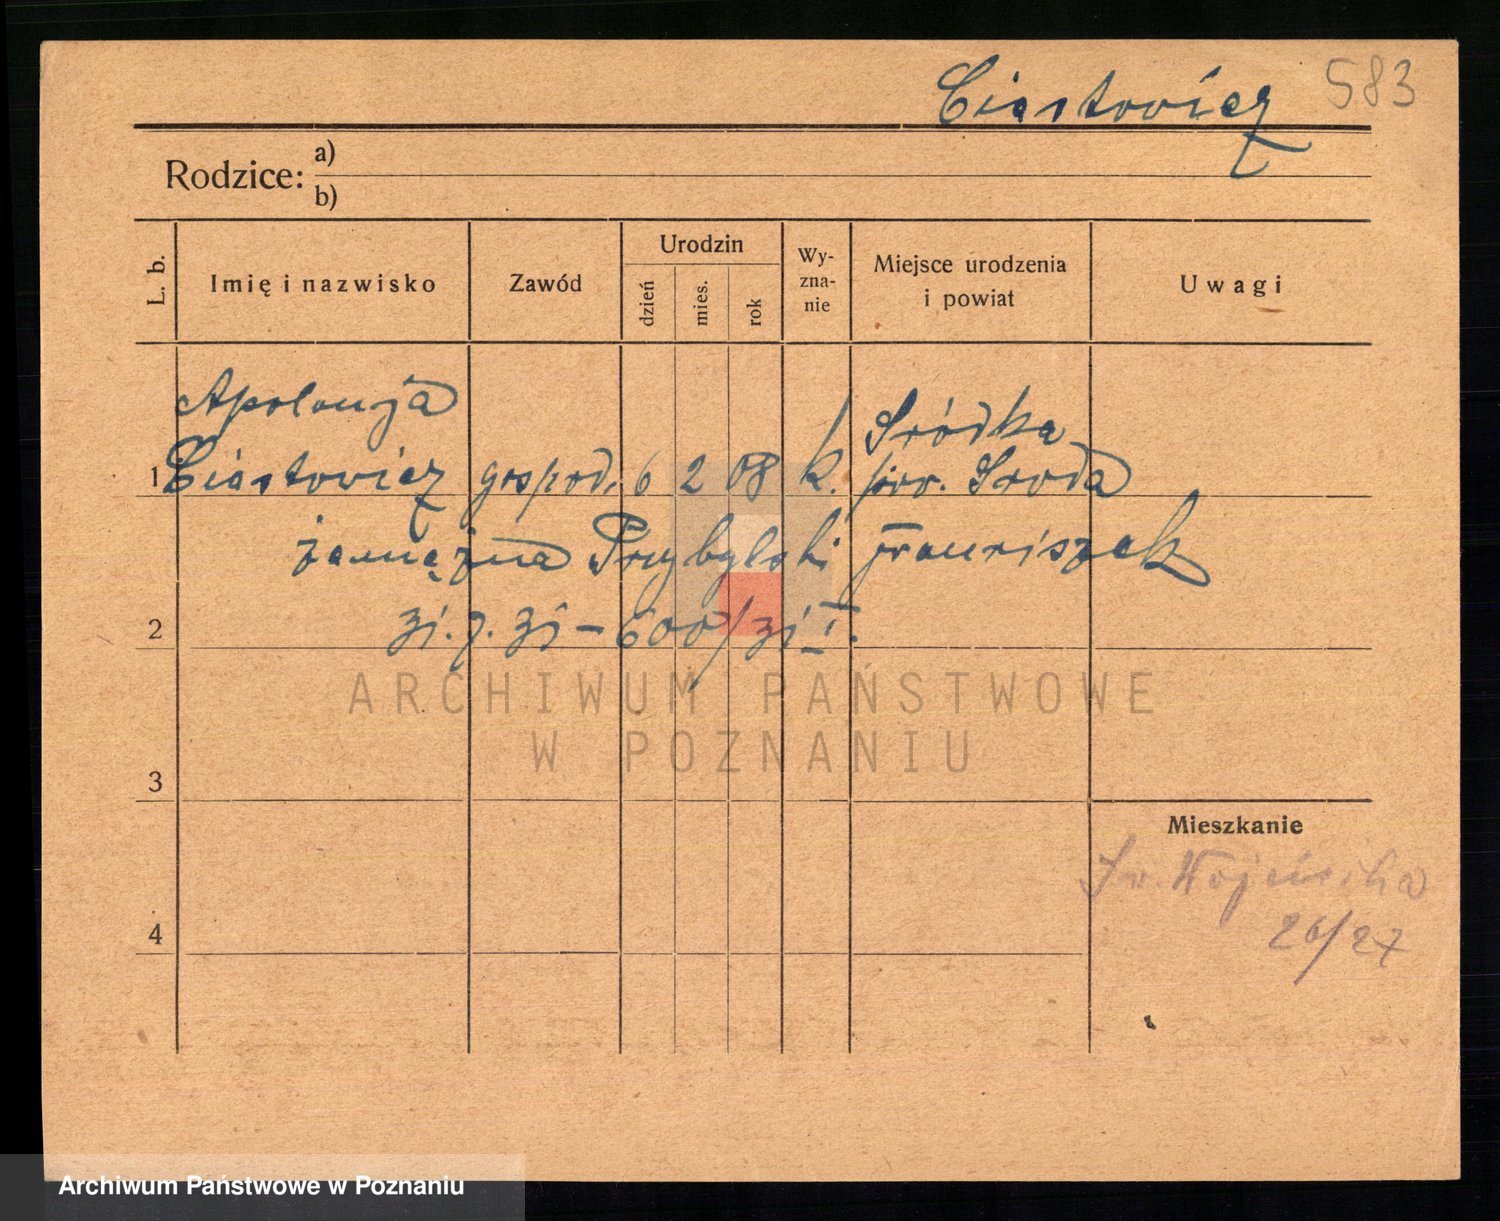 Ciastowicz 583
Rodzice: a)
b)
L. b. Imię i nazwisko Zawód Urodzin dzień mies. rok Wy-zna-nie Miejsce urodzenia i powiat Uwagi
Apolonja Sródka
1 Ciastowicz gospod. 6 2 08 k. pow. Sroda
zamężna Przybylski Franciszek
2
ARCHIWUM PAŃSTWOWE
W POZNANIU
3
Mieszkanie
Św. Wojciecha
4 26/27
Archiwum Państwowe w Poznaniu